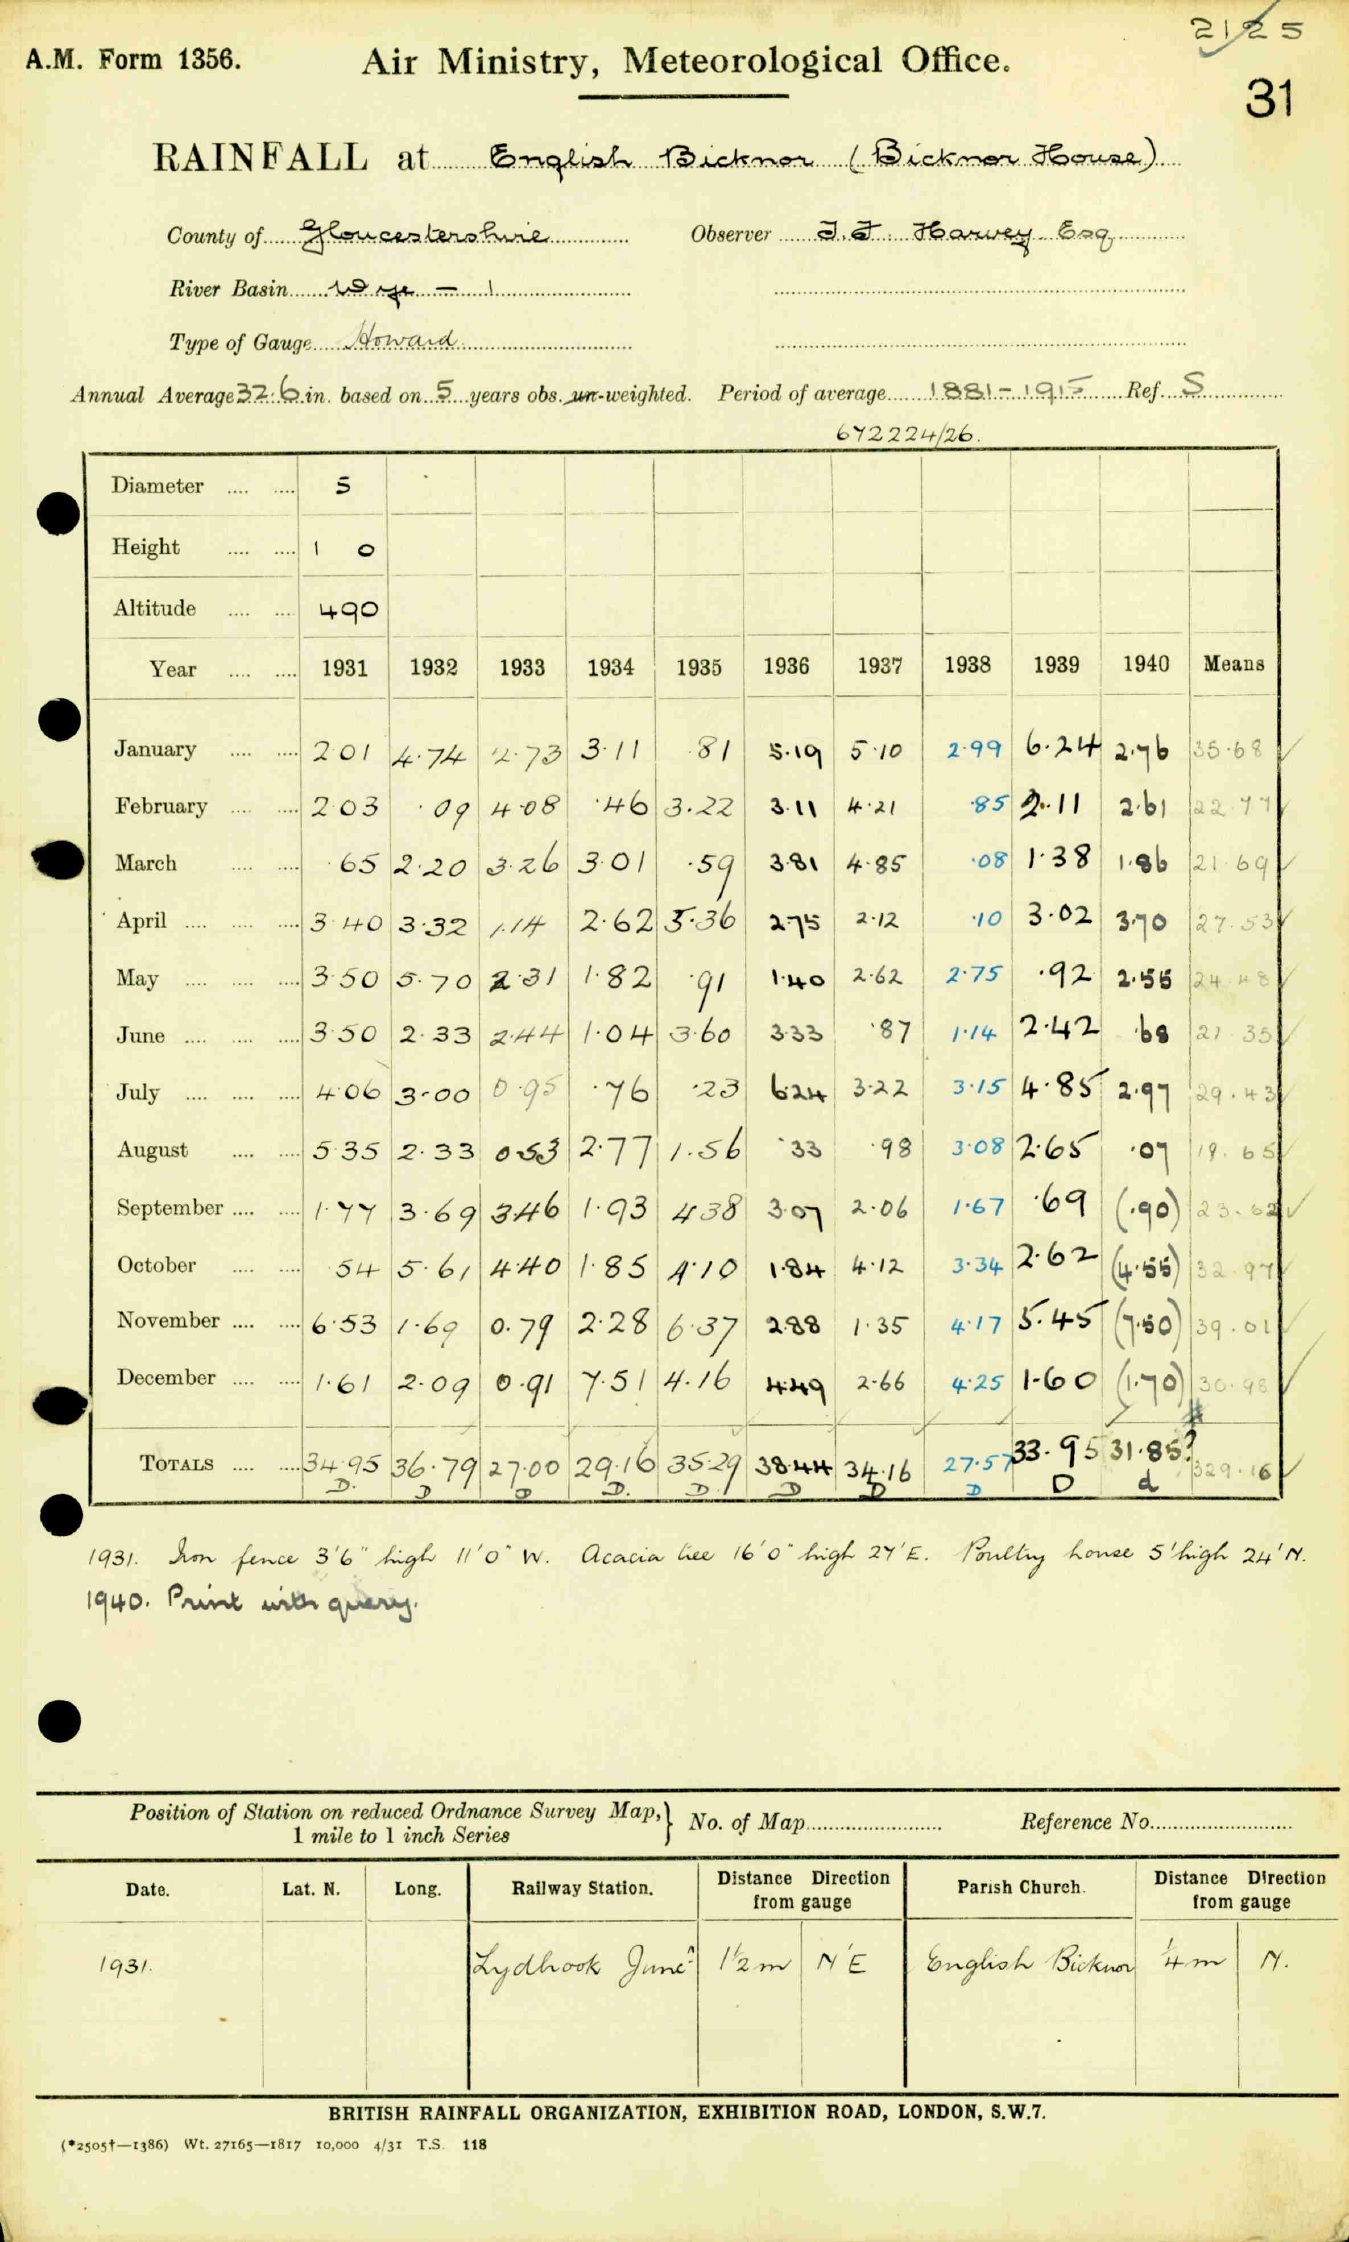 2125
A.M. Form 1356. Air Ministry, Meteorological Office.
31
RAINFALL at English Bicknor (Bicknor House)
County of Gloucestershire Observer J. J. Harvey Esq
River Basin Wye - 1
Type of Gauge Howard
Annual Average 32.6 in. based on 5 years obs. un-weighted. Period of average 1881-1915 Ref. S
672224/26.
Diameter 5
Height 1 0
Altitude 490
Year 1931 1932 1933 1934 1935 1936 1937 1938 1939 1940 Means
January 2·01 4·74 2·73 3·11 ·81 5·19 5·10 2·99 6·24 2·76 35·68 ✓
February 2·03 ·09 4·08 ·46 3·22 3·11 4·21 ·85 2·11 2·61 22·77 ✓
March ·65 2·20 3·26 3·01 ·59 3·81 4·85 ·08 1·38 1·86 21·69 ✓
April 3·40 3·32 1·14 2·62 5·36 2·75 2·12 ·10 3·02 3·70 27·53 ✓
May 3·50 5·70 2·31 1·82 ·91 1·40 2·62 2·75 ·92 2·55 24·48 ✓
June 3·50 2·33 2·44 1·04 3·60 3·33 ·87 1·14 2·42 ·68 21·35 ✓
July 4·06 3·00 0·95 ·76 ·23 6·24 3·22 3·15 4·85 2·97 29·43 ✓
August 5·35 2·33 0·53 2·77 1·56 ·33 ·98 3·08 2·65 ·07 19·65 ✓
September 1·77 3·69 3·46 1·93 4·38 3·07 2·06 1·67 ·69 (·90) 23·62 ✓
October ·54 5·61 4·40 1·85 4·10 1·84 4·12 3·34 2·62 (4·55) 32·97 ✓
November 6·53 1·69 0·79 2·28 6·37 2·88 1·35 4·17 5·45 (7·50) 39·01 ✓
December 1·61 2·09 0·91 7·51 4·16 4·49 2·66 4·25 1·60 (1·70) 30·98 ✓
TOTALS 34·95 36·79 27·00 29·16 35·29 38·44 34·16 27·57 33·95 31·85? 329·16 ✓
D. D D D. D. D D D D d
1931. Iron fence 3'6" high 11'0" W. Acacia tree 16'0" high 27'E. Poultry house 5'high 24'N.
1940. Print with query.
Position of Station on reduced Ordnance Survey Map,} No. of Map Reference No.
1 mile to 1 inch Series
Date. Lat. N. Long. Railway Station. Distance Direction from gauge Parish Church. Distance Direction from gauge
1931. Lydbrook Juncⁿ 1½ m N'E English Bicknor ¼ m N.
BRITISH RAINFALL ORGANIZATION, EXHIBITION ROAD, LONDON, S.W.7.
(*2505†—1386) Wt. 27165—1817 10,000 4/31 T.S. 118